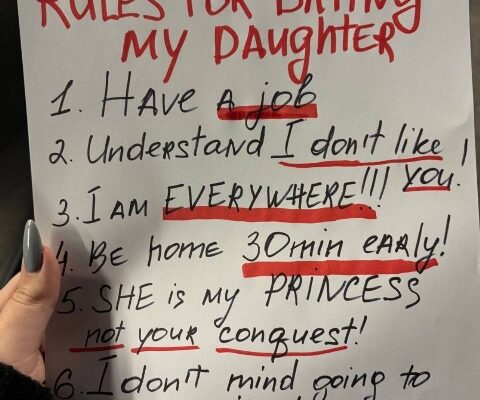 RULES FOR DATING
MY DAUGHTER
1. HAVE a job
2. Understand I don't like
you!
3. I AM EVERYWHERE!!!
4. BE home 30min EARly!
5. SHE is my PRINCESS
not your conquest!
6. I don't mind going to